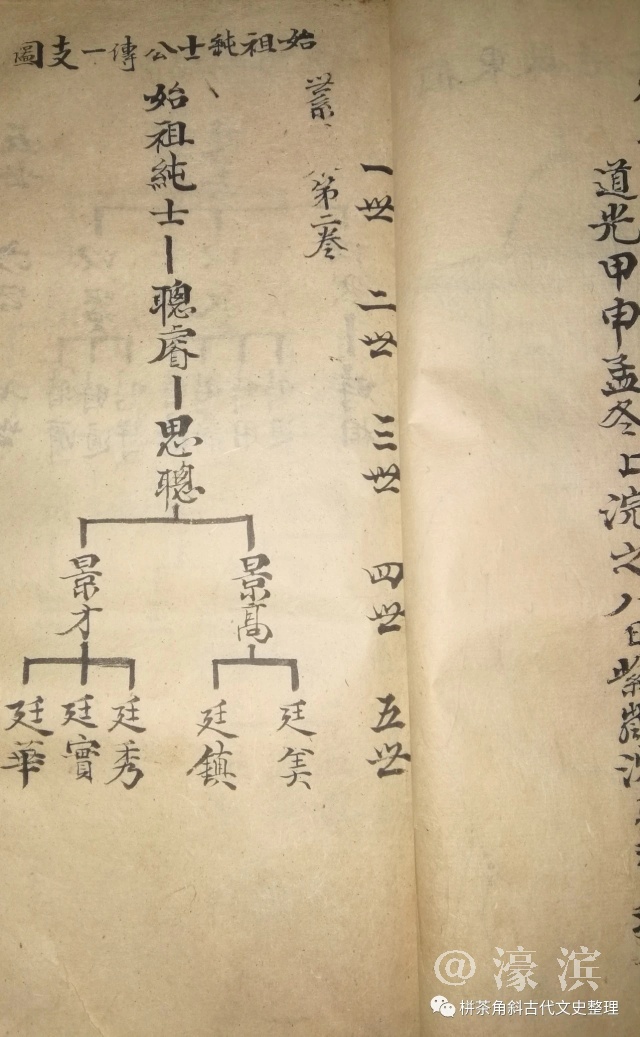 道光甲申孟冬上浣之八日紫
始祖純士公傳一支圖
一世 二世 三世 四世 五世
世系 第二卷
始祖純士 聰睿 思聰
景高
景才
廷美
廷鎮
廷秀
廷實
廷華
@濠滨
栟茶角斜古代文史整理